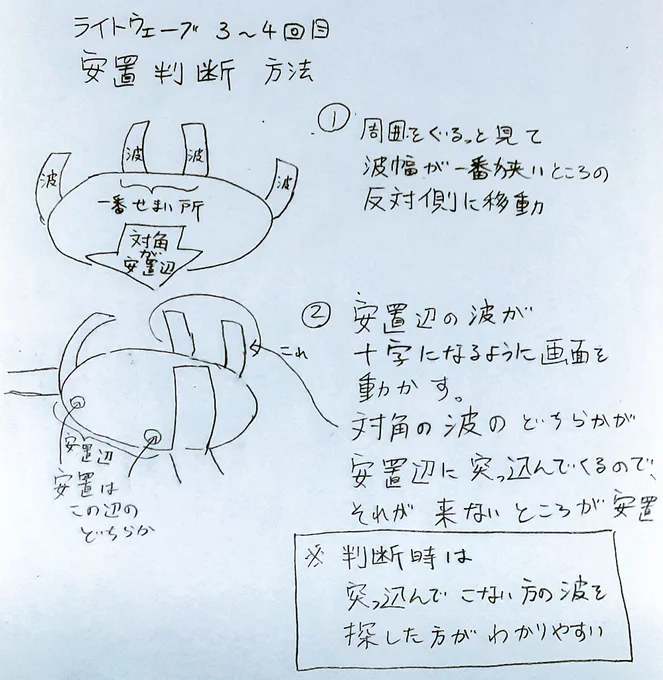 ライトウェーブ 3〜4回目
安置判断 方法
① 周囲をぐるっと見て
波幅が一番狭いところの
反対側に移動
波
波
波
波
一番せまい所
対角
が
安置辺
② 安置辺の波が
十字になるように画面を
動かす。
対角の波のどちらかが
安置辺に突っ込んでくるので、
それが来ないところが安置
これ
安置辺
安置は
この辺の
どちらか
※ 判断時は
突っ込んでこない方の波を
探した方がわかりやすい